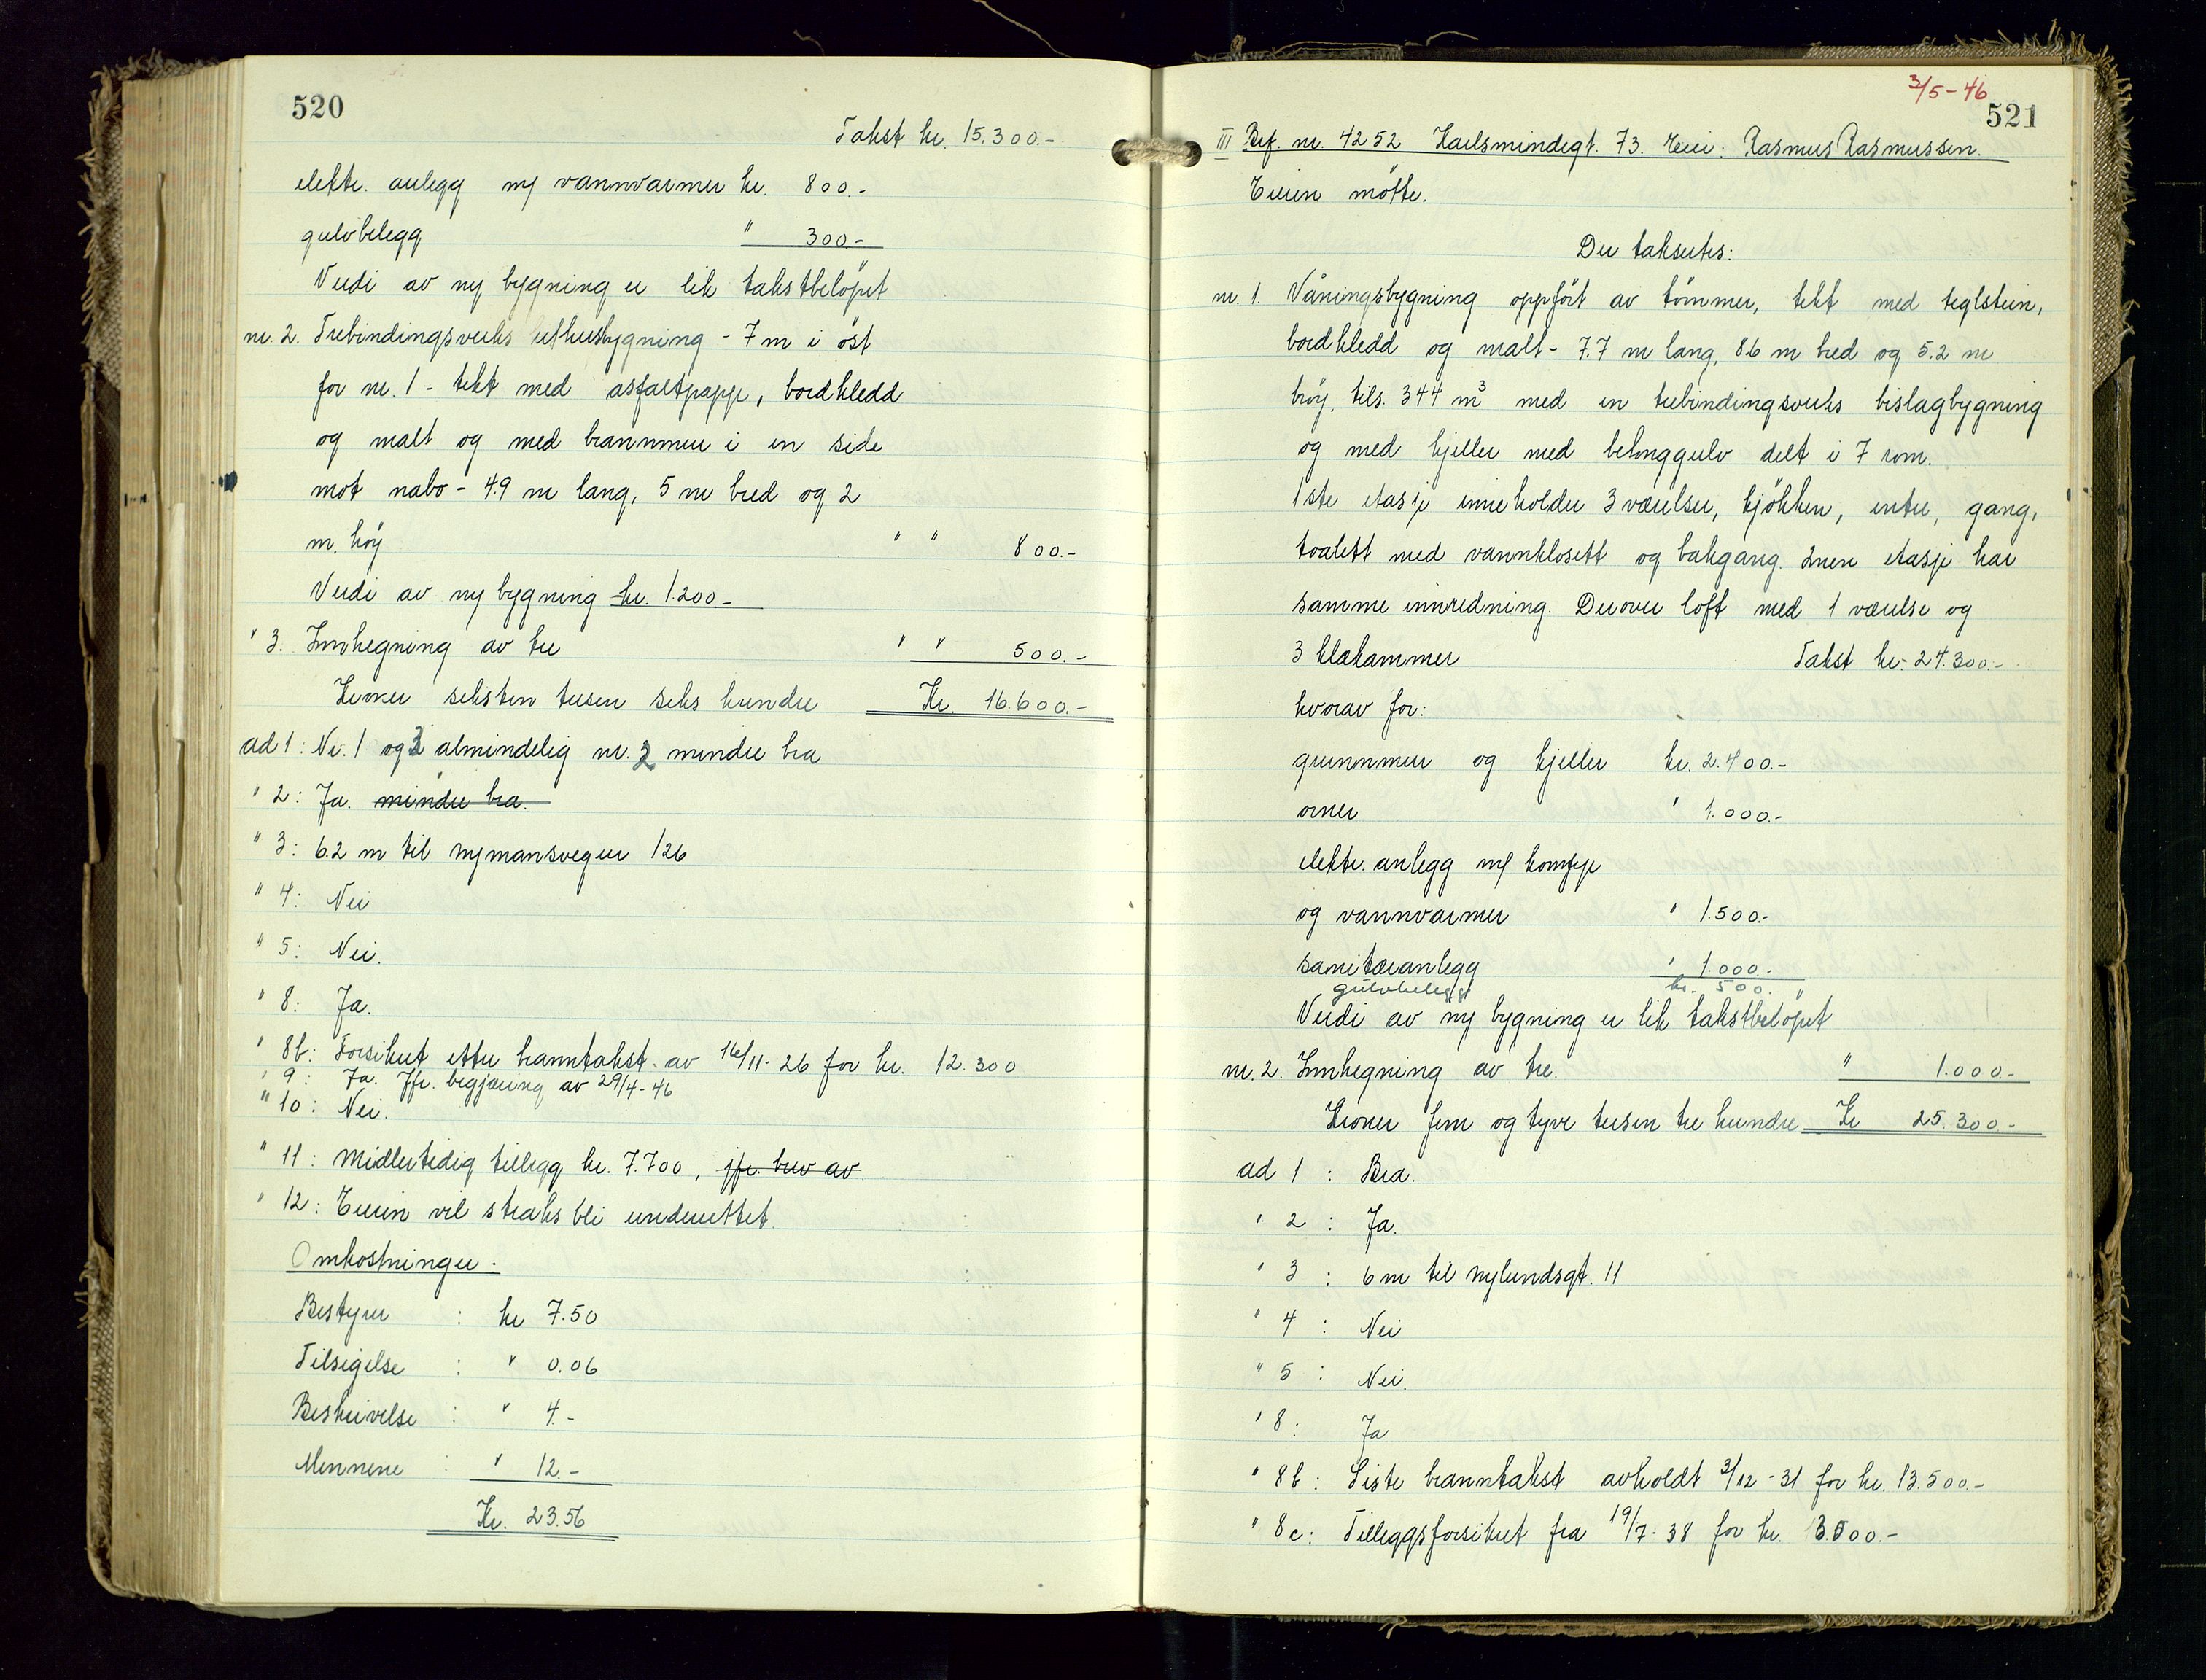 520
Takst kr. 15.300.-
elektr. anlegg m/ vannvarmer kr. 800.-
gulvbelegg " 300.-
Verdi av ny bygning er lik takstbeløpet
nr. 2. Trebindingsverks uthusbygning - 7 m i øst
for nr. 1 - tekt med asfaltpapp, bordkledd
og malt og med brannmur i en side
mot nabo - 4.9 m lang, 5 m bred og 2
m. høy " " 800.-
Verdi av ny bygning kr. 1.200.-
" 3. Innhegning av tre " " 500.-
Kroner seksten tusen seks hundre Kr. 16.600.-
ad 1: Nr. 1 og 3 almindelig nr. 2 mindre bra
" 2: Ja. mindre bra.
" 3: 6.2 m til nymansvegen 126
" 4: Nei
" 5: Nei.
" 8: Ja.
" 8b: Forsikret etter branntakst. av 16/11-26 for kr. 12.300
" 9: Ja. Jfr. begjæring av 29/4-46
" 10: Nei.
" 11: Midlertidig tillegg kr. 7.700, jfr. brev av
" 12: Eieren vil straks bli underrettet.
Omkostninger.
Bestyrer : kr 7.50
Tilsigelse : " 0.06
Beskrivelse : " 4.-
Mennene : " 12.-
Kr. 23.56
3/5-46
521
III Brf. nr. 4252 Karlsmindegt. 73. Eier: Rasmus Rasmussen.
Eieren møtte.
Der takseres:
nr. 1. Våningsbygning oppført av tømmer, tekt med teglstein,
bordkledd og malt - 7.7 m lang, 8.6 m bred og 5.2 m
høy, tils. 344 m3 med en trebindingsverks bislagbygning
og med kjeller med betonggulv delt i 7 rom.
1ste etasje inneholder 3 værelser, kjøkken, entre, gang,
toalett med vannklosett og bakgang. 2nen etasje har
samme innredning. Derover loft med 1 værelse og
3 klækammer Takst kr. 24.300.-
hvorav for:
grunnmur og kjeller kr. 2.400.-
ovner " 1.000.-
elektr. anlegg m/ komfyr
og vannvarmer " 1.500.-
sanitæranlegg " 1.000.-
gulvbelegg kr. 500. "
Verdi av ny bygning er lik takstbeløpet
nr. 2. Innhegning av tre. " 1.000.-
Kroner fem og tyve tusen tre hundre Kr 25.300.-
ad 1 : Bra.
" 2 : Ja.
" 3 : 6 m til nylundsgt. 11
" 4 : Nei
" 5 : Nei.
" 8 : Ja
" 8b : Siste branntakst avholdt 3/12-31 for kr. 13.500.-
" 8c : Tilleggsforsikret fra 19/7-38 for kr. 3.500.-